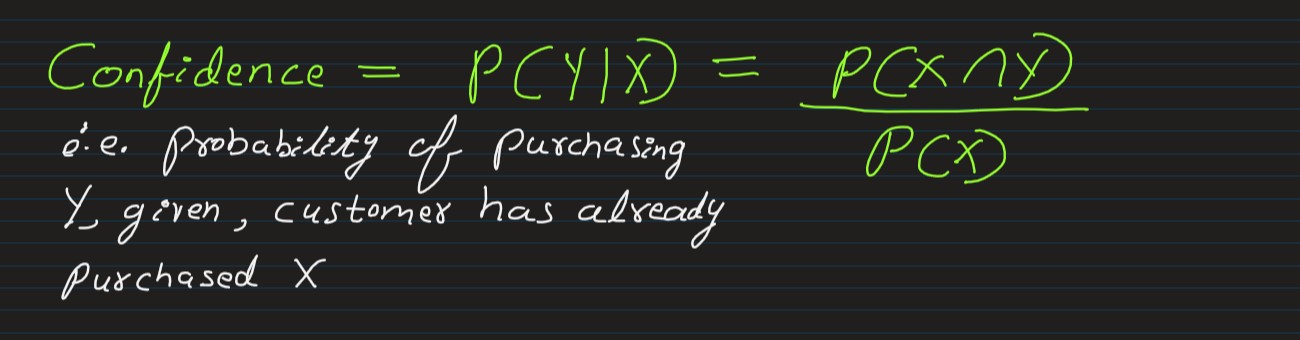 Confidence = P(Y|X) = P(X∩Y) / P(X)
i.e. Probability of purchasing
Y, given, customer has already
purchased X